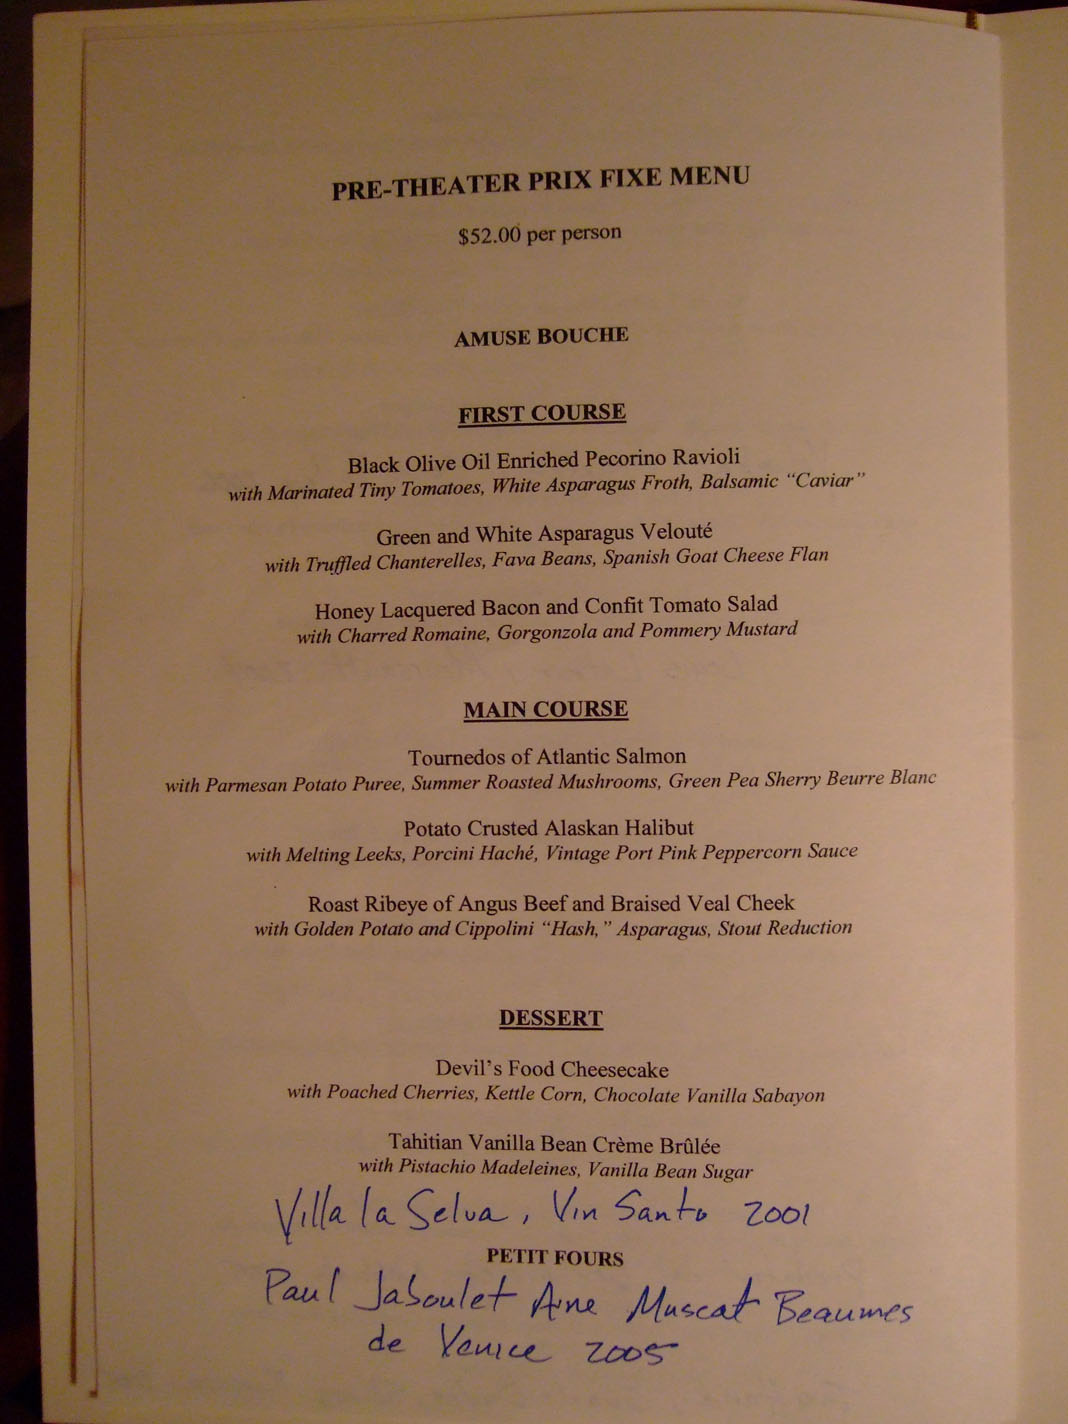 PRE-THEATER PRIX FIXE MENU
$52.00 per person
AMUSE BOUCHE
FIRST COURSE
Black Olive Oil Enriched Pecorino Ravioli
with Marinated Tiny Tomatoes, White Asparagus Froth, Balsamic “Caviar”
Green and White Asparagus Velouté
with Truffled Chanterelles, Fava Beans, Spanish Goat Cheese Flan
Honey Lacquered Bacon and Confit Tomato Salad
with Charred Romaine, Gorgonzola and Pommery Mustard
MAIN COURSE
Tournedos of Atlantic Salmon
with Parmesan Potato Puree, Summer Roasted Mushrooms, Green Pea Sherry Beurre Blanc
Potato Crusted Alaskan Halibut
with Melting Leeks, Porcini Haché, Vintage Port Pink Peppercorn Sauce
Roast Ribeye of Angus Beef and Braised Veal Cheek
with Golden Potato and Cippolini “Hash,” Asparagus, Stout Reduction
DESSERT
Devil’s Food Cheesecake
with Poached Cherries, Kettle Corn, Chocolate Vanilla Sabayon
Tahitian Vanilla Bean Crème Brûlée
with Pistachio Madeleines, Vanilla Bean Sugar
Villa la Selva, Vin Santo 2001
PETIT FOURS
Paul Jaboulet Aine Muscat Beaumes
de Venice 2005